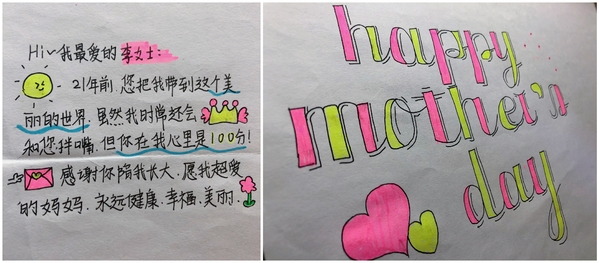 Hi~我最爱的李女士:
21年前,您把我带到这个美
丽的世界.虽然我时常还会
和您拌嘴,但你在我心里是100分!
感谢你陪我长大.愿我超爱
的妈妈.永远健康.幸福.美丽.
happy
mother's
day